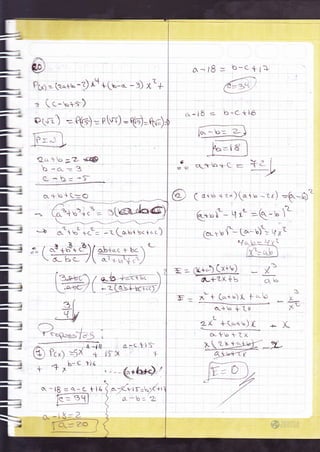 20
P(x) = (2a+b-2)x⁴ + (b-a-3)x² +
+ (c-b+5)
P(√2) = P(√3) = P(√5) = P(√7) = 0
2a+b=2
b-a=3
c-b=-5
a+b+c=0
→ a²+b²+c² = -2(ab+bc+ac)
∴ (a³+b³+c³ / abc) (ab+ac+bc / a²+b²+c²)²
3/4
Propuestos:
1 P(x) = 5x^(a-18) + 15x^(a-c+15) +
+ 7x^(b-c+16) ... (a+b+c)
a-18 = a-c+16
c=34
a-c+15=b-c+17
a-b=2
a-18=2
a=20
a-18 = b-c+17
c=34
a-18 = b-c+16
a-b=2
b=18
∴ a+b+c = 72
2 (a+b+2x)(a+b-2x) = (a-b)²
(a+b)² - 4x² = (a-b)²
(a+b)² - (a-b)² = 4x²
4ab = 4x²
x²=ab
E = (x+a)(x+b) / a+2x+b - x³ / ab
E = x² + (a+b)x + ab / a+b+2x - x³ / x²
2x² + (a+b)x / a+b+2x - x
x(2x+a+b) / a+b+2x - x
E=0